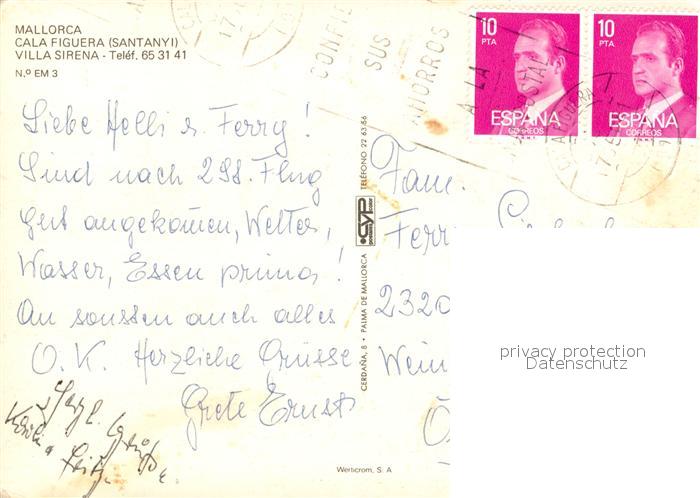 MALLORCA
CALA FIGUERA (SANTANYI)
VILLA SIRENA - Teléf. 65 31 41
N.º EM 3
CONFIE
SUS
AHORROS
A LA
POSTAL
10
PTA
ESPAÑA
CORREOS
10
PTA
ESPAÑA
CORREOS
Liebe Helli u. Ferry!
Sind nach 2 Std. Flug
gut angekommen, Wetter,
Wasser, Essen prima!
Ansonsten auch alles
O.K. Herzliche Grüsse
Grete Ernst
Herzl. Grüße
CERDAÑA, 8 • PALMA DE MALLORCA
CYP
TELEFONO 22 63 56
Fam.
Ferr
2320
Wein
Ö
Werticrom, S. A
privacy protection
Datenschutz